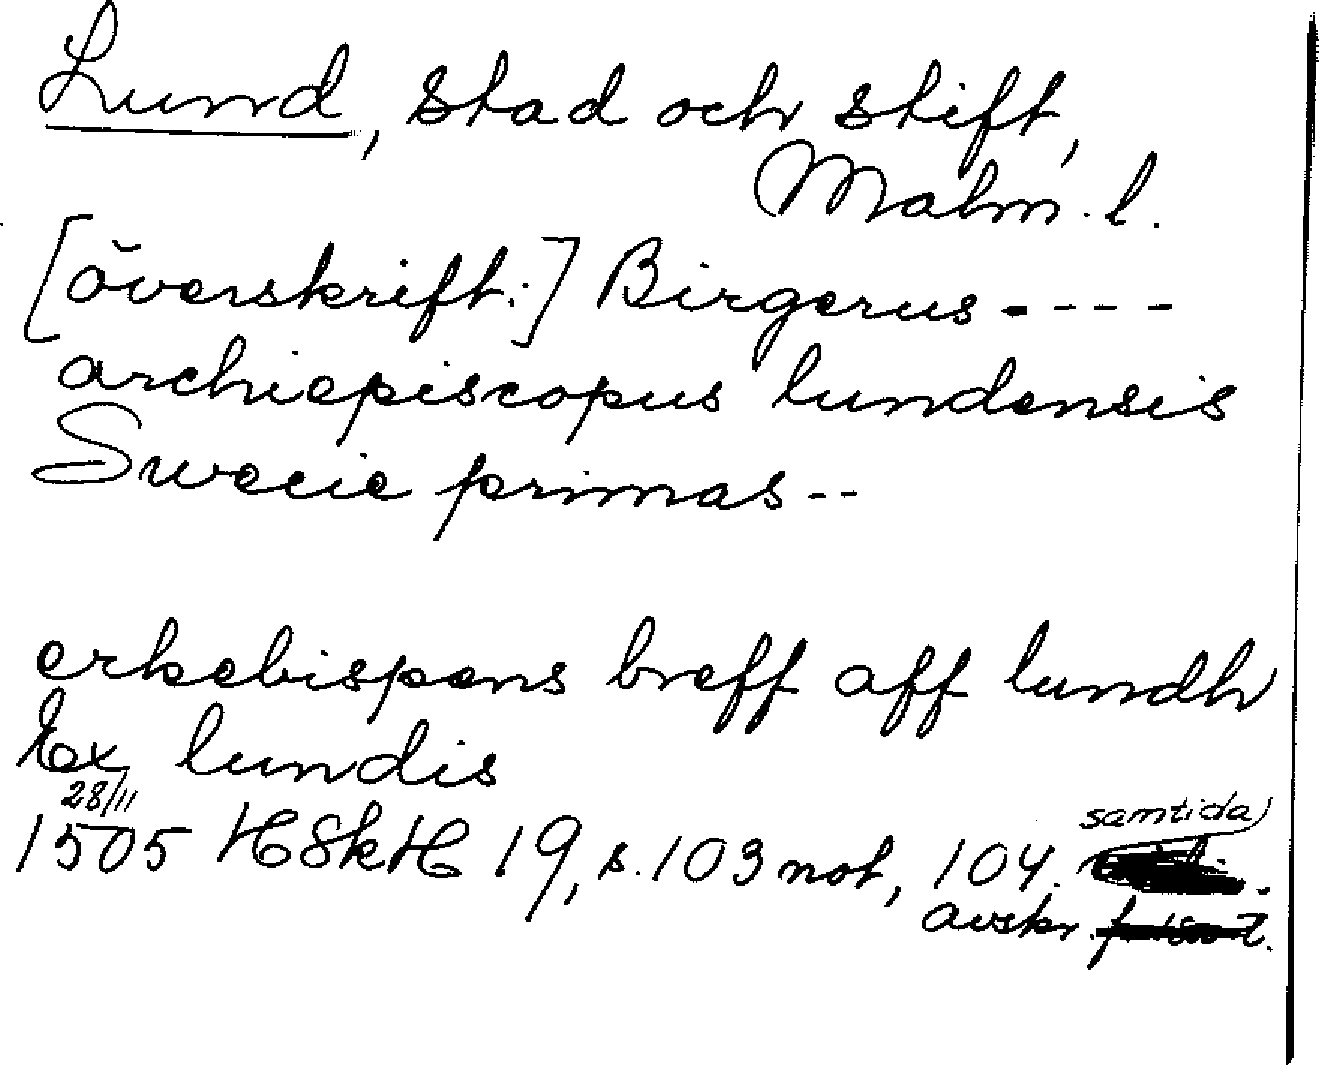 Lund, stad och stift,
Malm. l.
[överskrift:] Birgerus - - - -
archiepiscopus lundensis
Swecie primas - -
erkebispens breff aff lundh
Ex lundis
28/11
1505 HSkH 19, s. 103 not, 104. samtida
avskr.